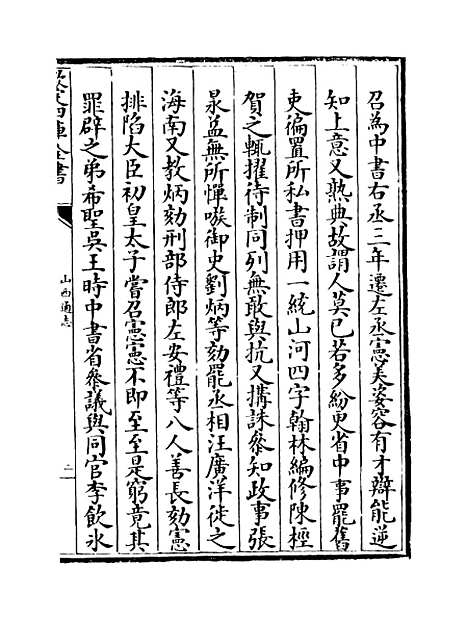 召為中書右丞三年遷左丞憲美姿容有才辯能逆
知上意又熟典故謂人莫已若多紛更省中事罷舊
吏徧置所私書押用一統山河四字翰林編修陳桱
賀之輒擢待制同列無敢與抗又搆誅叅知政事張
昶益無所憚嗾御史劉炳等劾罷丞相汪廣洋徙之
海南又教炳劾刑部侍郎左安禮等八人善長劾憲
排陷大臣初皇太子嘗召憲憲不即至至是窮竟其
罪辟之弟希聖吳王時中書省叅議與同官李飲冰
欽定四庫全書
山西通志
二